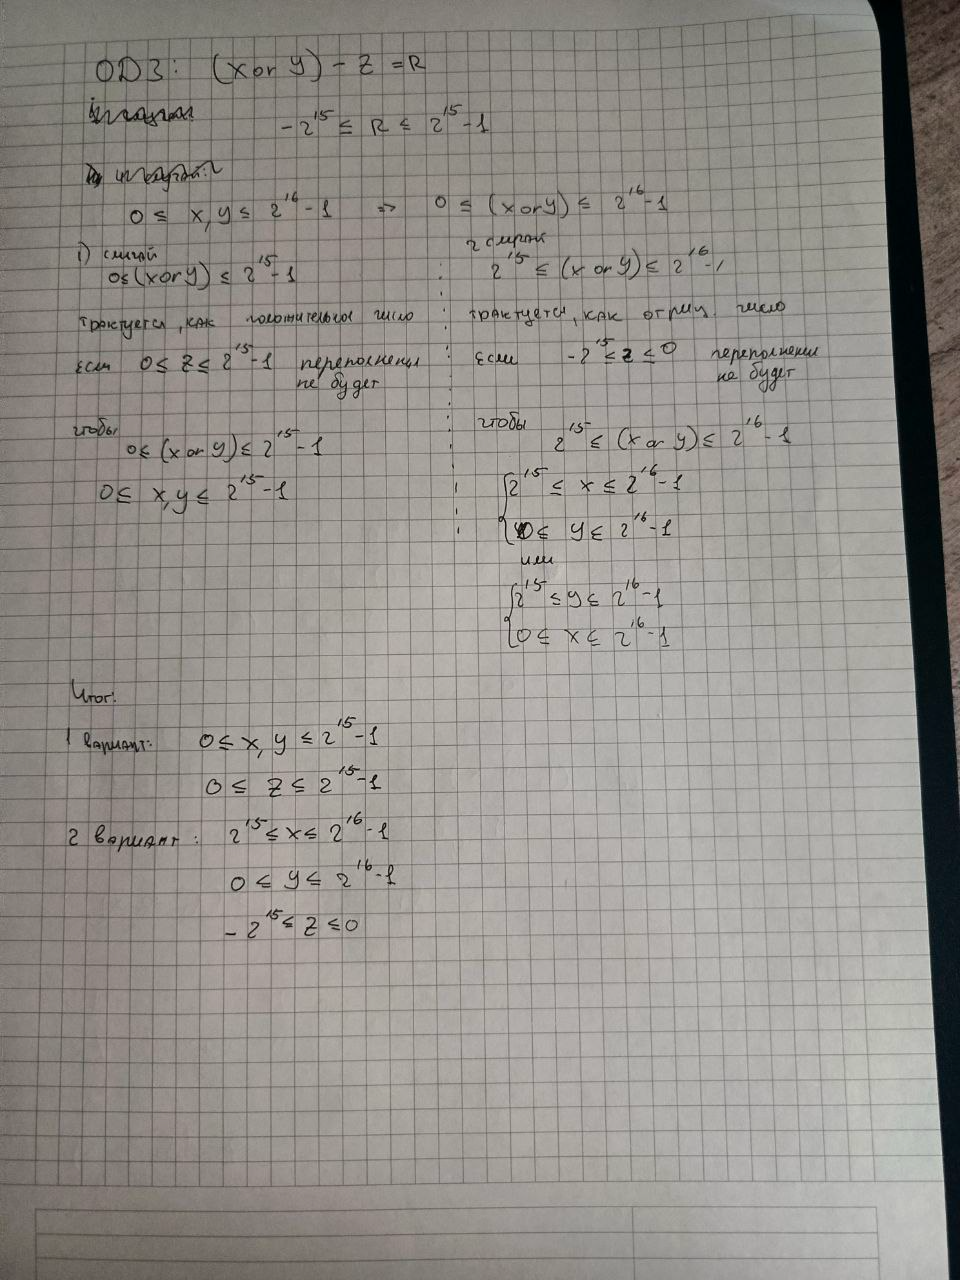 ОДЗ: (x or y) - z = R
-2^15 ≤ R ≤ 2^15-1
0 ≤ x,y ≤ 2^16-1 => 0 ≤ (x or y) ≤ 2^16-1
1) случай
0≤(x or y) ≤ 2^15-1
трактуется, как положительное число
Если 0≤ z ≤ 2^15-1 переполнения
не будет
чтобы
0≤ (x or y) ≤ 2^15-1
0≤ x,y ≤ 2^15-1
2 случай
2^15 ≤ (x or y) ≤ 2^16-1
трактуется, как отриц. число
Если -2^15 ≤ z ≤ 0 переполнения
не будет
чтобы
2^15 ≤ (x or y) ≤ 2^16-1
2^15 ≤ x ≤ 2^16-1
0≤ y ≤ 2^16-1
или
2^15 ≤ y ≤ 2^16-1
0 ≤ x ≤ 2^16-1
Итог:
1 вариант: 0 ≤ x, y ≤ 2^15-1
0 ≤ z ≤ 2^15-1
2 вариант: 2^15 ≤ x ≤ 2^16-1
0 ≤ y ≤ 2^16-1
-2^15 ≤ z ≤ 0